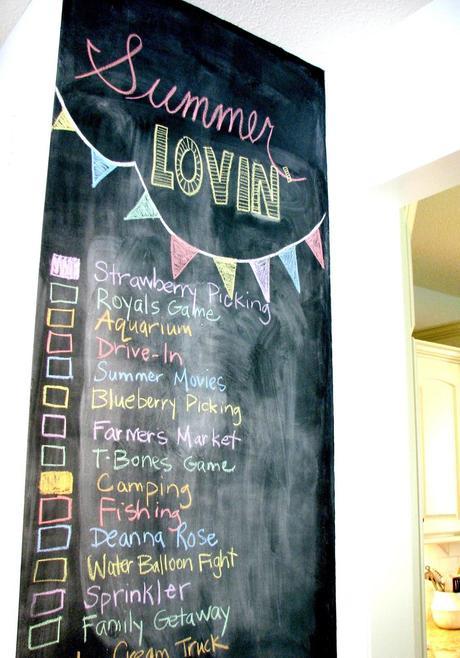 Summer
LOVIN'
Strawberry Picking
Royals Game
Aquarium
Drive-In
Summer Movies
Blueberry Picking
Farmers Market
T-Bones Game
Camping
Fishing
Deanna Rose
Water Balloon Fight
Sprinkler
Family Getaway
Cream Truck